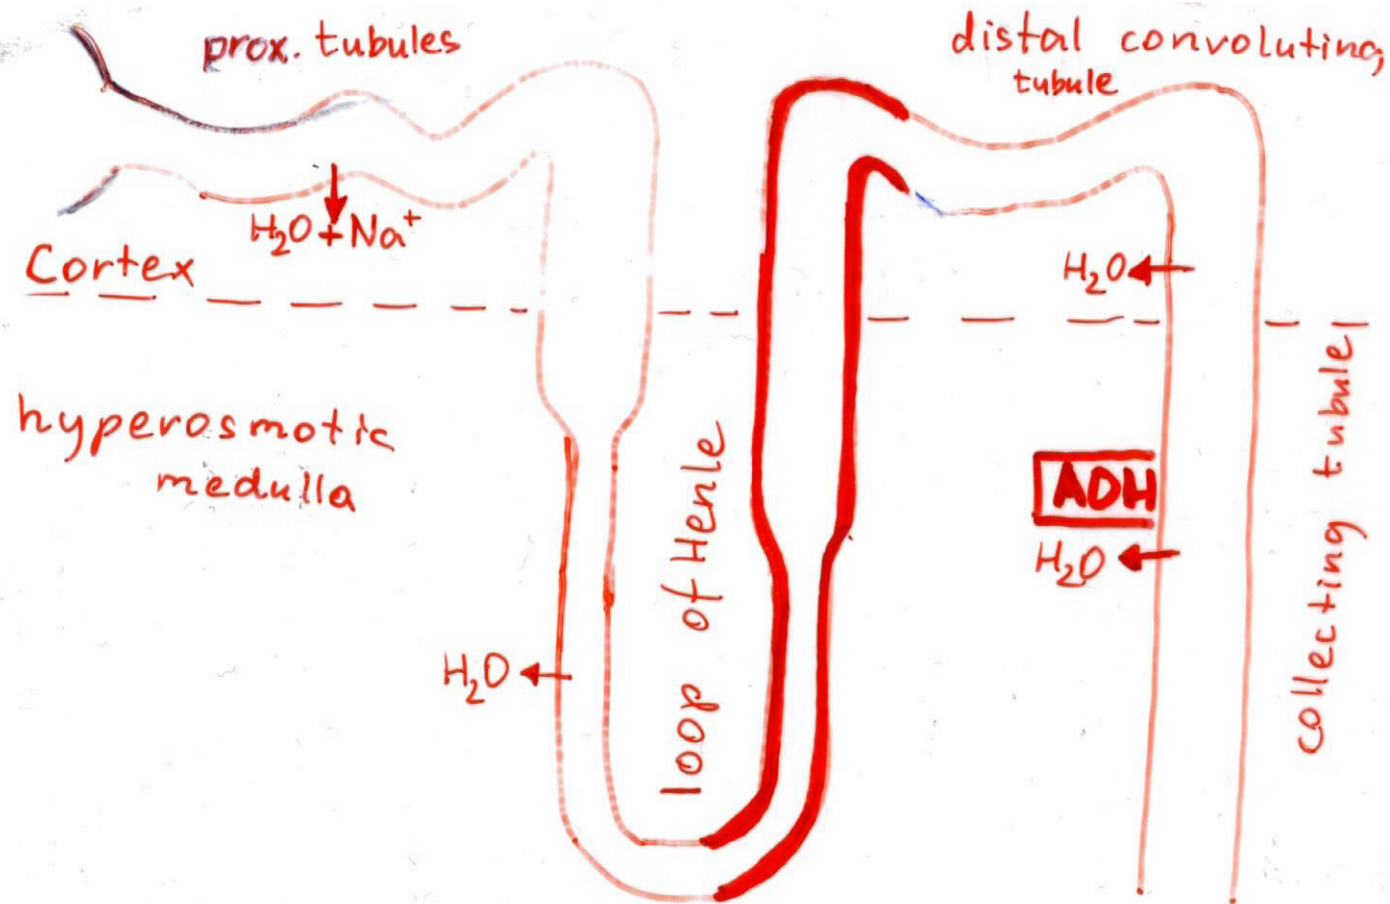 prox. tubules
distal convoluting
tubule
H₂O + Na⁺
Cortex
H₂O
hyperosmotic
medulla
loop of Henle
ADH
H₂O
H₂O
collecting tubule